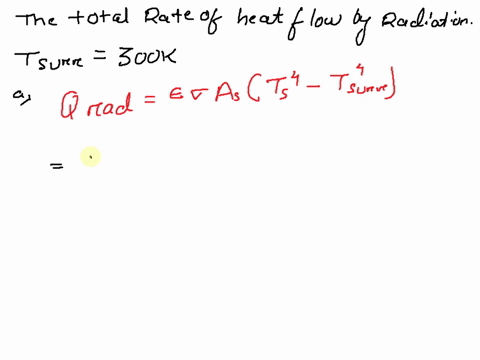 The total Rate of heat flow by Radiation.
Tsurr = 300K
a, Q rad = ϵ σ As ( Ts⁴ - Tsurr⁴ )
=